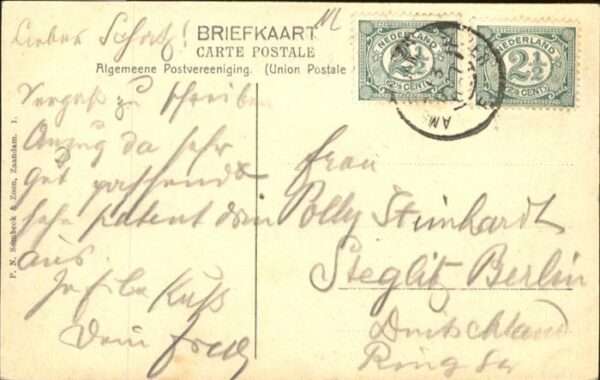 Lieber Schatz!
BRIEFKAART
CARTE POSTALE
Algemeene Postvereeniging. (Union Postale
NEDERLAND
2½
2½ CENT
NEDERLAND
2½
2½ CENT
AM
Vergaß zu schreiben
Anzug da sehr
gut passend
sehe patent drin
aus.
Kuß
Dein Fred
Frau
Polly Steinhardt
Steglitz Berlin
Deutschland
P. N. Sombeek & Zoon, Zaandam. 1.